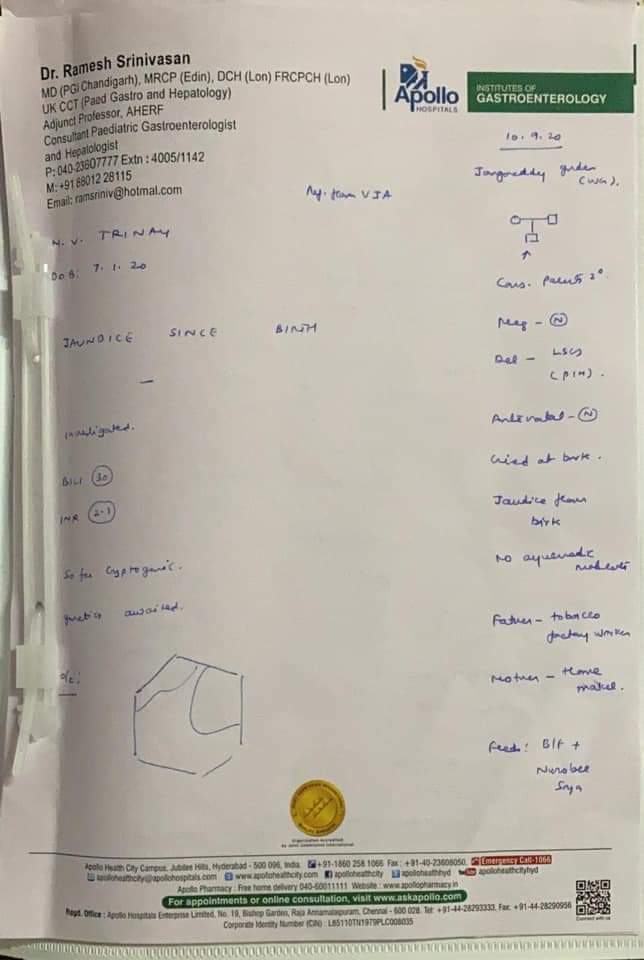 Dr. Ramesh Srinivasan
MD (PGI Chandigarh), MRCP (Edin), DCH (Lon) FRCPCH (Lon)
UK CCT (Paed Gastro and Hepatology)
Adjunct Professor, AHERF
Consultant Paediatric Gastroenterologist
and Hepatologist
P: 040-23607777 Extn : 4005/1142
M: +91 88012 28115
Email: ramsriniv@hotmal.com
Apollo
HOSPITALS
INSTITUTES OF
GASTROENTEROLOGY
10.9.20
(WG).
from VJA
N. V. TRINAY
DoB: 7.1.20
Cons. Parents 2°
JAUNDICE SINCE BIRTH
Preg - (N)
Del - LSCS
(PIH).
Antenatal - (N)
investigated.
cried at birth.
BILI (30)
INR (2.1)
Jaundice from
birth
So far cryptogenic.
No ayurvedic
genetics awaited.
Father - tobacco
factory worker
o/e:
Mother - Home
maker.
Feeds: B/F +
Soya
Organization Accredited
by Joint Commission International
Apollo Health City Campus, Jubilee Hills, Hyderabad - 500 096, India. +91-1860 258 1066 Fax : +91-40-23608050, Emergency Call-1066
apollohealthcity@apollohospitals.com www.apollohealthcity.com apollohealthcity apollohealthhyd apollohealthcityhyd
Apollo Pharmacy : Free home delivery 040-60011111 Website : www.apollopharmacy.in
For appointments or online consultation, visit www.askapollo.com
Regd. Office : Apollo Hospitals Enterprise Limited, No. 19, Bishop Garden, Raja Annamalaipuram, Chennai - 600 028. Tel : +91-44-28293333, Fax. +91-44-28290956
Corporate Identity Number (CIN) : L85110TN1979PLC008035
Connect with us